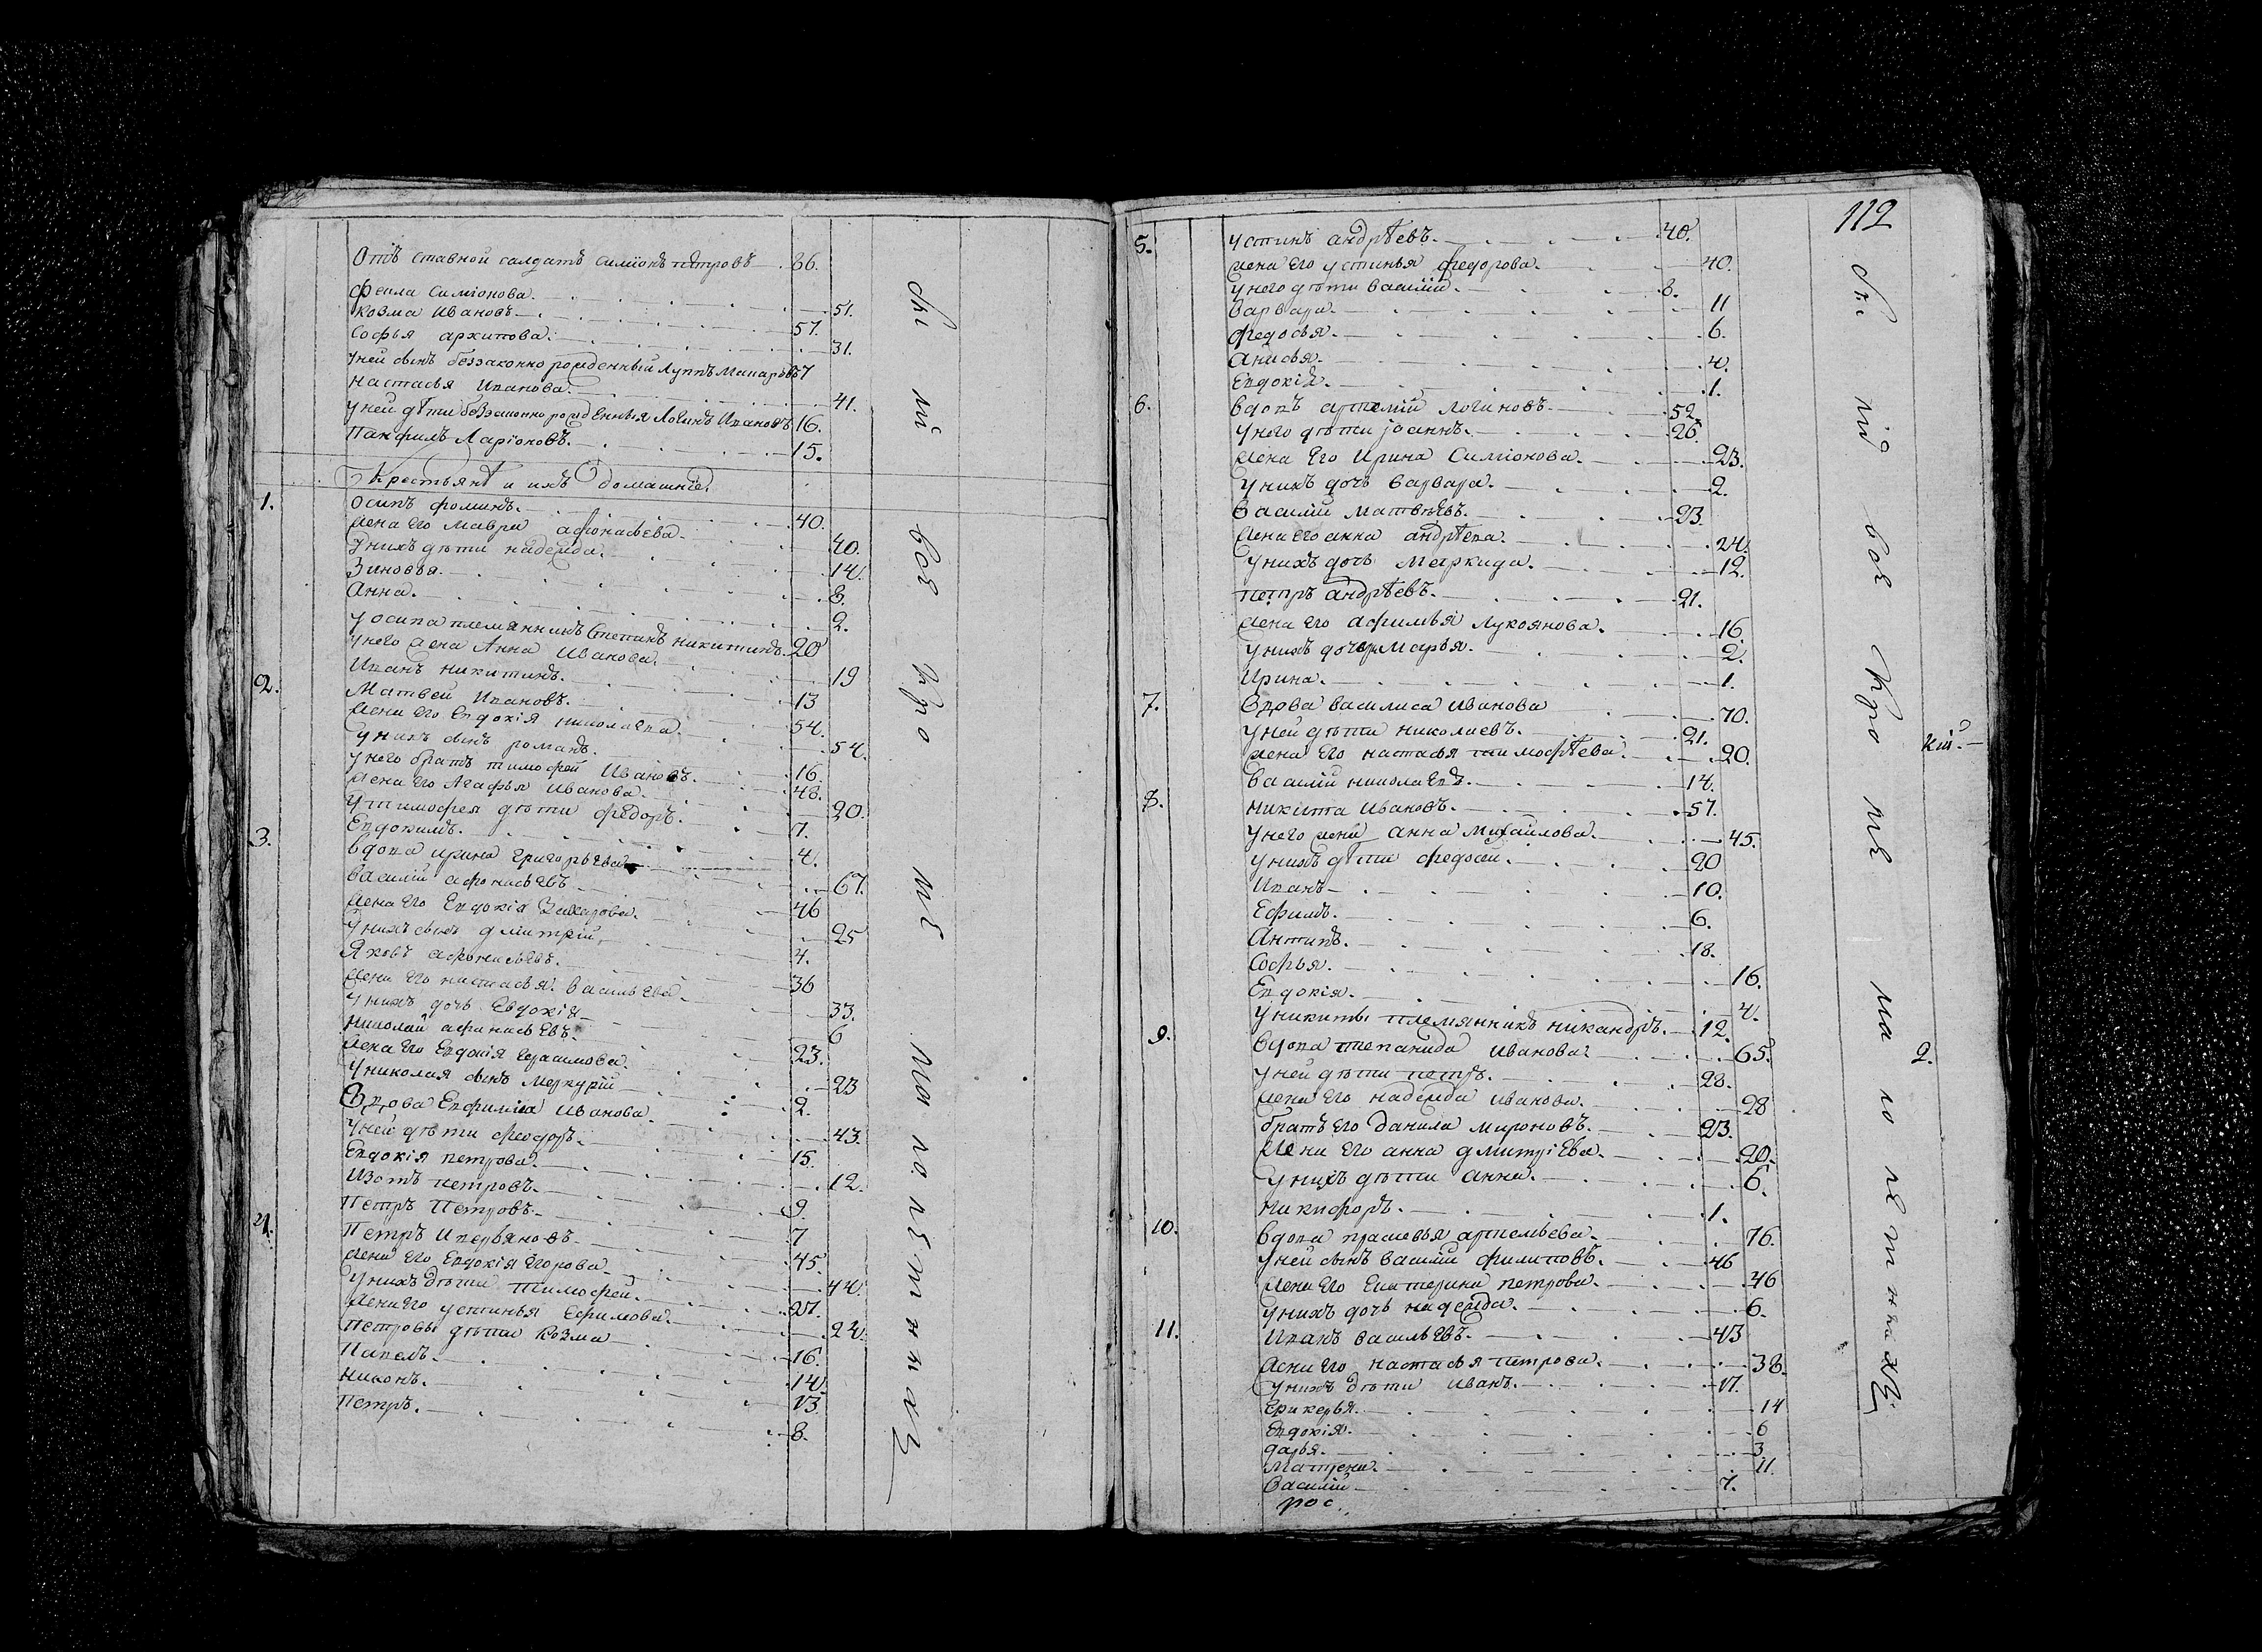 Отъ ставной салдатъ Симіонъ петровъ 86.
Фекла Симіонова. 51.
Козма Ивановъ 57.
Софья архипова. 31.
У ней сынъ беззаконно рожденный Луппъ 7
Настасья Иванова. 41.
У ней дѣти беззаконно рожденныя Логинъ Ивановъ 16.
Панфилъ Ларіоновъ. 15.
Крестьянѣ и ихъ домашніе.
1. Осипъ фоминъ. 40.
Жена Его Мавра афонасьева. 40.
У нихъ дѣти надежда. 14.
Зиновья. 8.
Анна. 2.
У осипа племянникъ Степанъ никитинъ. 20
У него жена Анна Иванова. 19
Иванъ никитинъ. 13
2. Матвей Ивановъ. 54.
Жена Его Евдокія николаева 54.
У нихъ сынъ романъ. 16.
У него братъ тимофей Ивановъ. 48.
Жена Его Агафья Иванова. 20.
У тимофея дѣти фѣдоръ. 7.
Евдокимъ. 4.
3. Вдова ирина григорьева 67.
Василій афонасьевъ 46
Жена Его Евдокія Захарова. 25
У нихъ сынъ дмитрій, 4.
Яковъ афонасьевъ. 36
Жена Его настасья васильева 33.
У нихъ дочь Евдокія 6
Николай афонасьевъ. 23.
Жена Его Евдокія Герасимова. 23
У николая сынъ Меркурій 2.
Вдова Евфимія Иванова. 43.
У ней дѣти феодоръ. 15.
Евдокія петрова. 12.
Изотъ петровъ. 9.
Петръ Петровъ. 7
4. Петръ Аверьяновъ 45.
Жена Его Евдокія Егорова 44.
У нихъ дѣти тимофей. 27.
Жена Его устинья Ефимова. 24.
Петровы дѣти Козма 16.
Павелъ. 14.
Никонъ. 13.
Петръ. 8.
Скитское кроме малолетныхъ
112
5. Устинъ андрѣевъ. 40.
Жена Его устинья федорова. 40.
У него дѣти василій. 8.
Варвара. 11
Федосья. 6.
Анисья. 4.
Евдокія. 1.
6. Вдовъ артемій логиновъ 52.
У него дѣти іоаннъ. 26.
Жена Его Ирина Симіонова. 23.
У нихъ дочь варвара. 2.
Василій Матвѣевъ. 23.
Жена Его анна андрѣева. 24.
У нихъ дочь Меркида. 12.
Петръ андрѣевъ. 21.
Жена Его афимья Лукоянова. 16.
У нихъ дочери Марья. 2.
Ирина. 1.
7. Вдова василиса Иванова 70.
У ней дѣти николаевъ. 21.
Жена Его настасья тимофѣева. 20.
Василій николаевъ. 14.
8. Никита Ивановъ. 57.
У него жена анна Михайлова. 45.
У нихъ дѣти федосій. 20
Иванъ 10.
Ефимъ. 6.
Антипъ. 18.
Софья. 16.
Евдокія. 4.
У никиты племянникъ никандръ. 12.
9. Вдова степанида Иванова 65.
У ней дѣти петръ. 28.
Жена Его надежда Иванова. 28
Братъ Его Данила Мироновъ. 23.
Жена Его анна дмитріева. 20.
У нихъ дѣти анна. 6.
Никифоръ. 1.
10. Вдова прасковья артемьева. 76.
У ней сынъ василій филиповъ. 46
Жена Его Екатерина петрова. 46
У нихъ дочь надежда. 6.
11. Иванъ васильевъ. 43
Жена Его настасья петрова. 38.
У нихъ дѣти Иванъ. 17.
14
Евдокія. 6
Дарья. 3
Матрена. 11.
Василій 7.
рос
кія.
2.